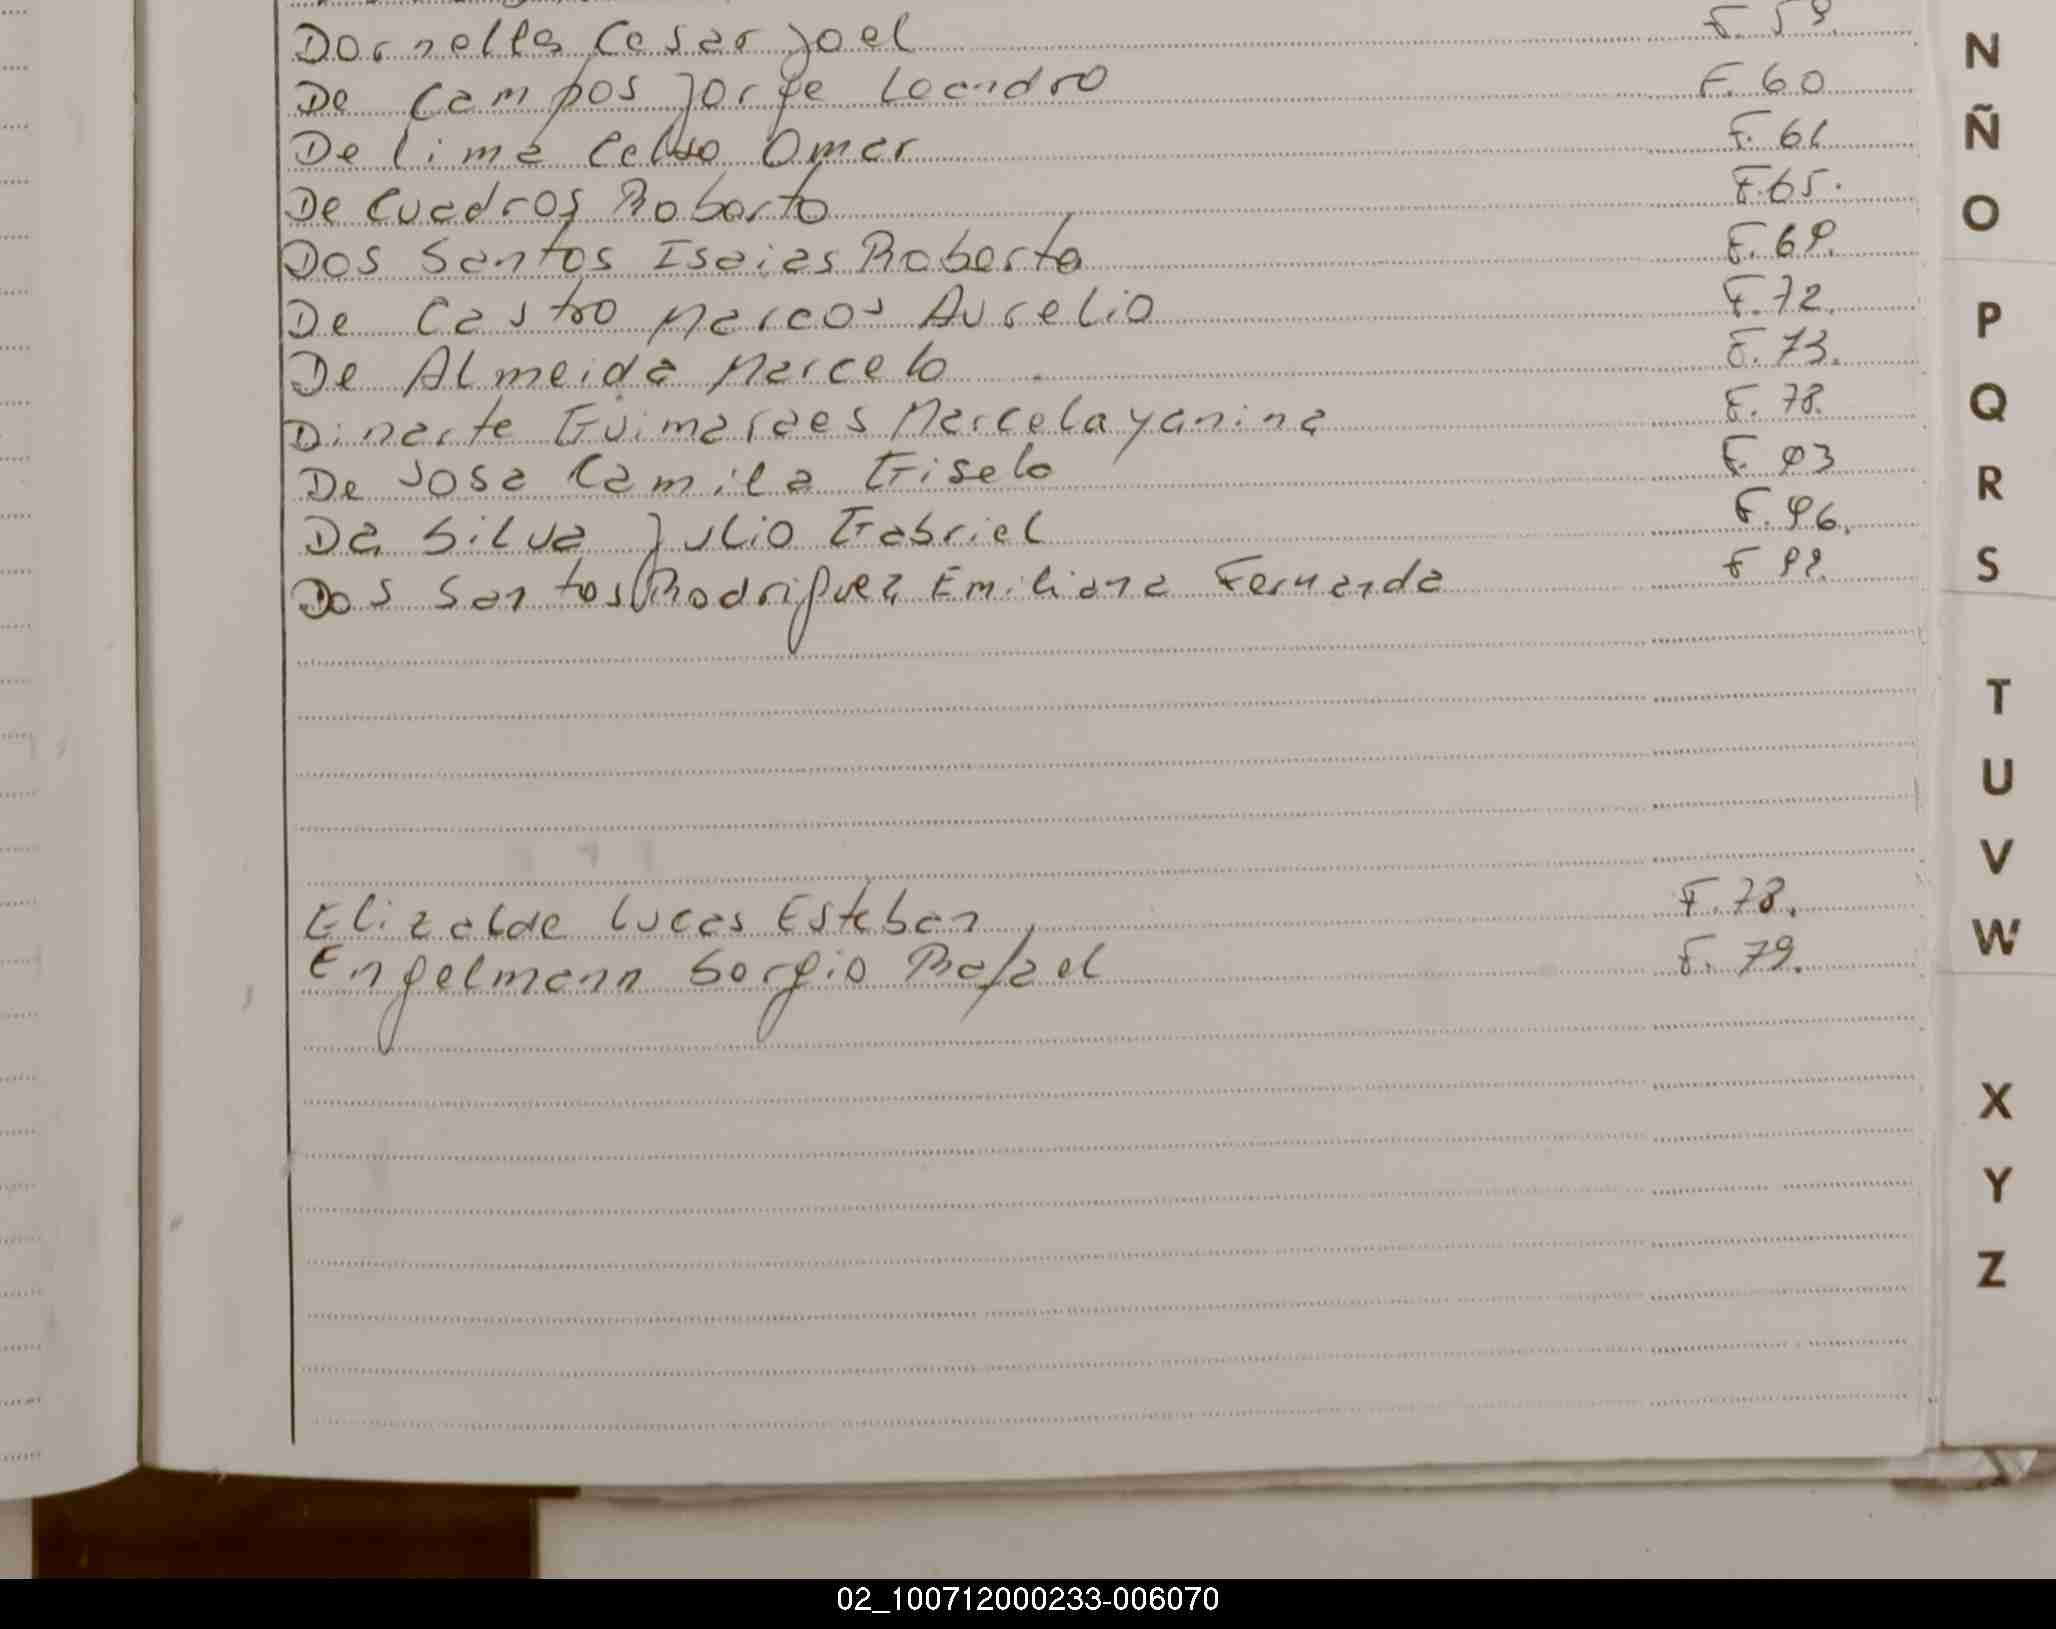 Dornelles Cesar Joel F. 59.
De Campos Jorge Leandro F. 60
De lima Celso Omar F. 61
De Cuadros Roberto F. 65.
Dos Santos Isaias Roberto F. 69.
De Castro Marcos Aurelio F. 72.
De Almeida Marcelo F. 73.
Dinarte Guimaraes Marcela yanina F. 78.
De Josa Camila Gisela F. 93
Da Silva Julio Gabriel F. 96.
Dos Santos Rodriguez Emiliana Fernanda F 99.
Elizalde lucas Esteban F. 78.
Engelmann Sergio Rafael F. 79.
N
Ñ
O
P
Q
R
S
T
U
V
W
X
Y
Z
02_100712000233-006070